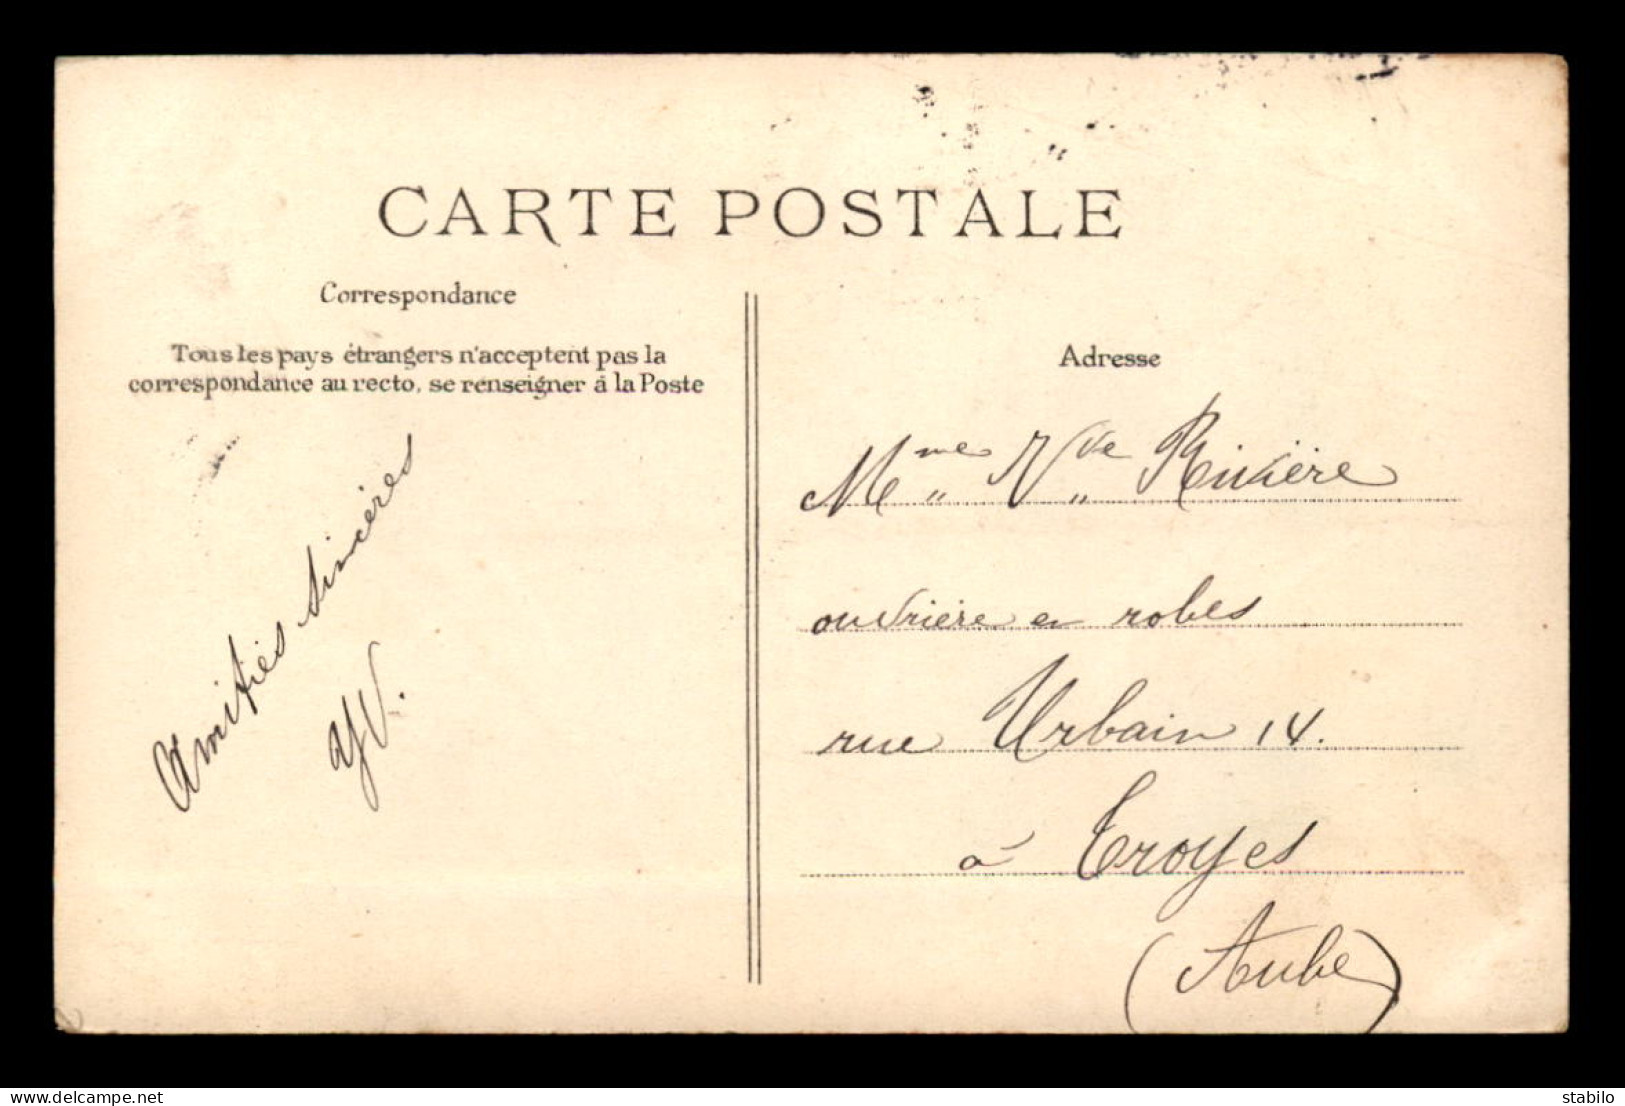 CARTE POSTALE
Correspondance
Tous les pays étrangers n'acceptent pas la
correspondance au recto, se renseigner à la Poste
Amitiés sincères
Adresse
Mme Vve Rivière
ouvrière en robes
rue Urbain 14.
à Troyes
(Aube)
delcampe.net
stabilo